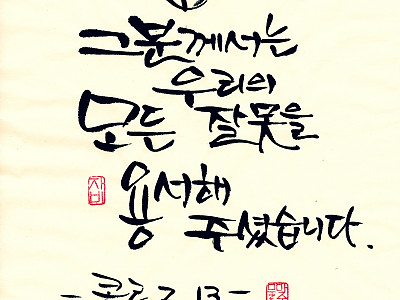 그분께서는
우리의
모든 잘못을
자비
용서해
주셨습니다.
- 콜로 2, 13 -